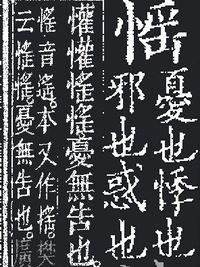 愮憂也悸也
邪也惑也
懽懽愮愮憂無告也
愮音遙。本又作搖。樊
云愮愮憂無告也。廣